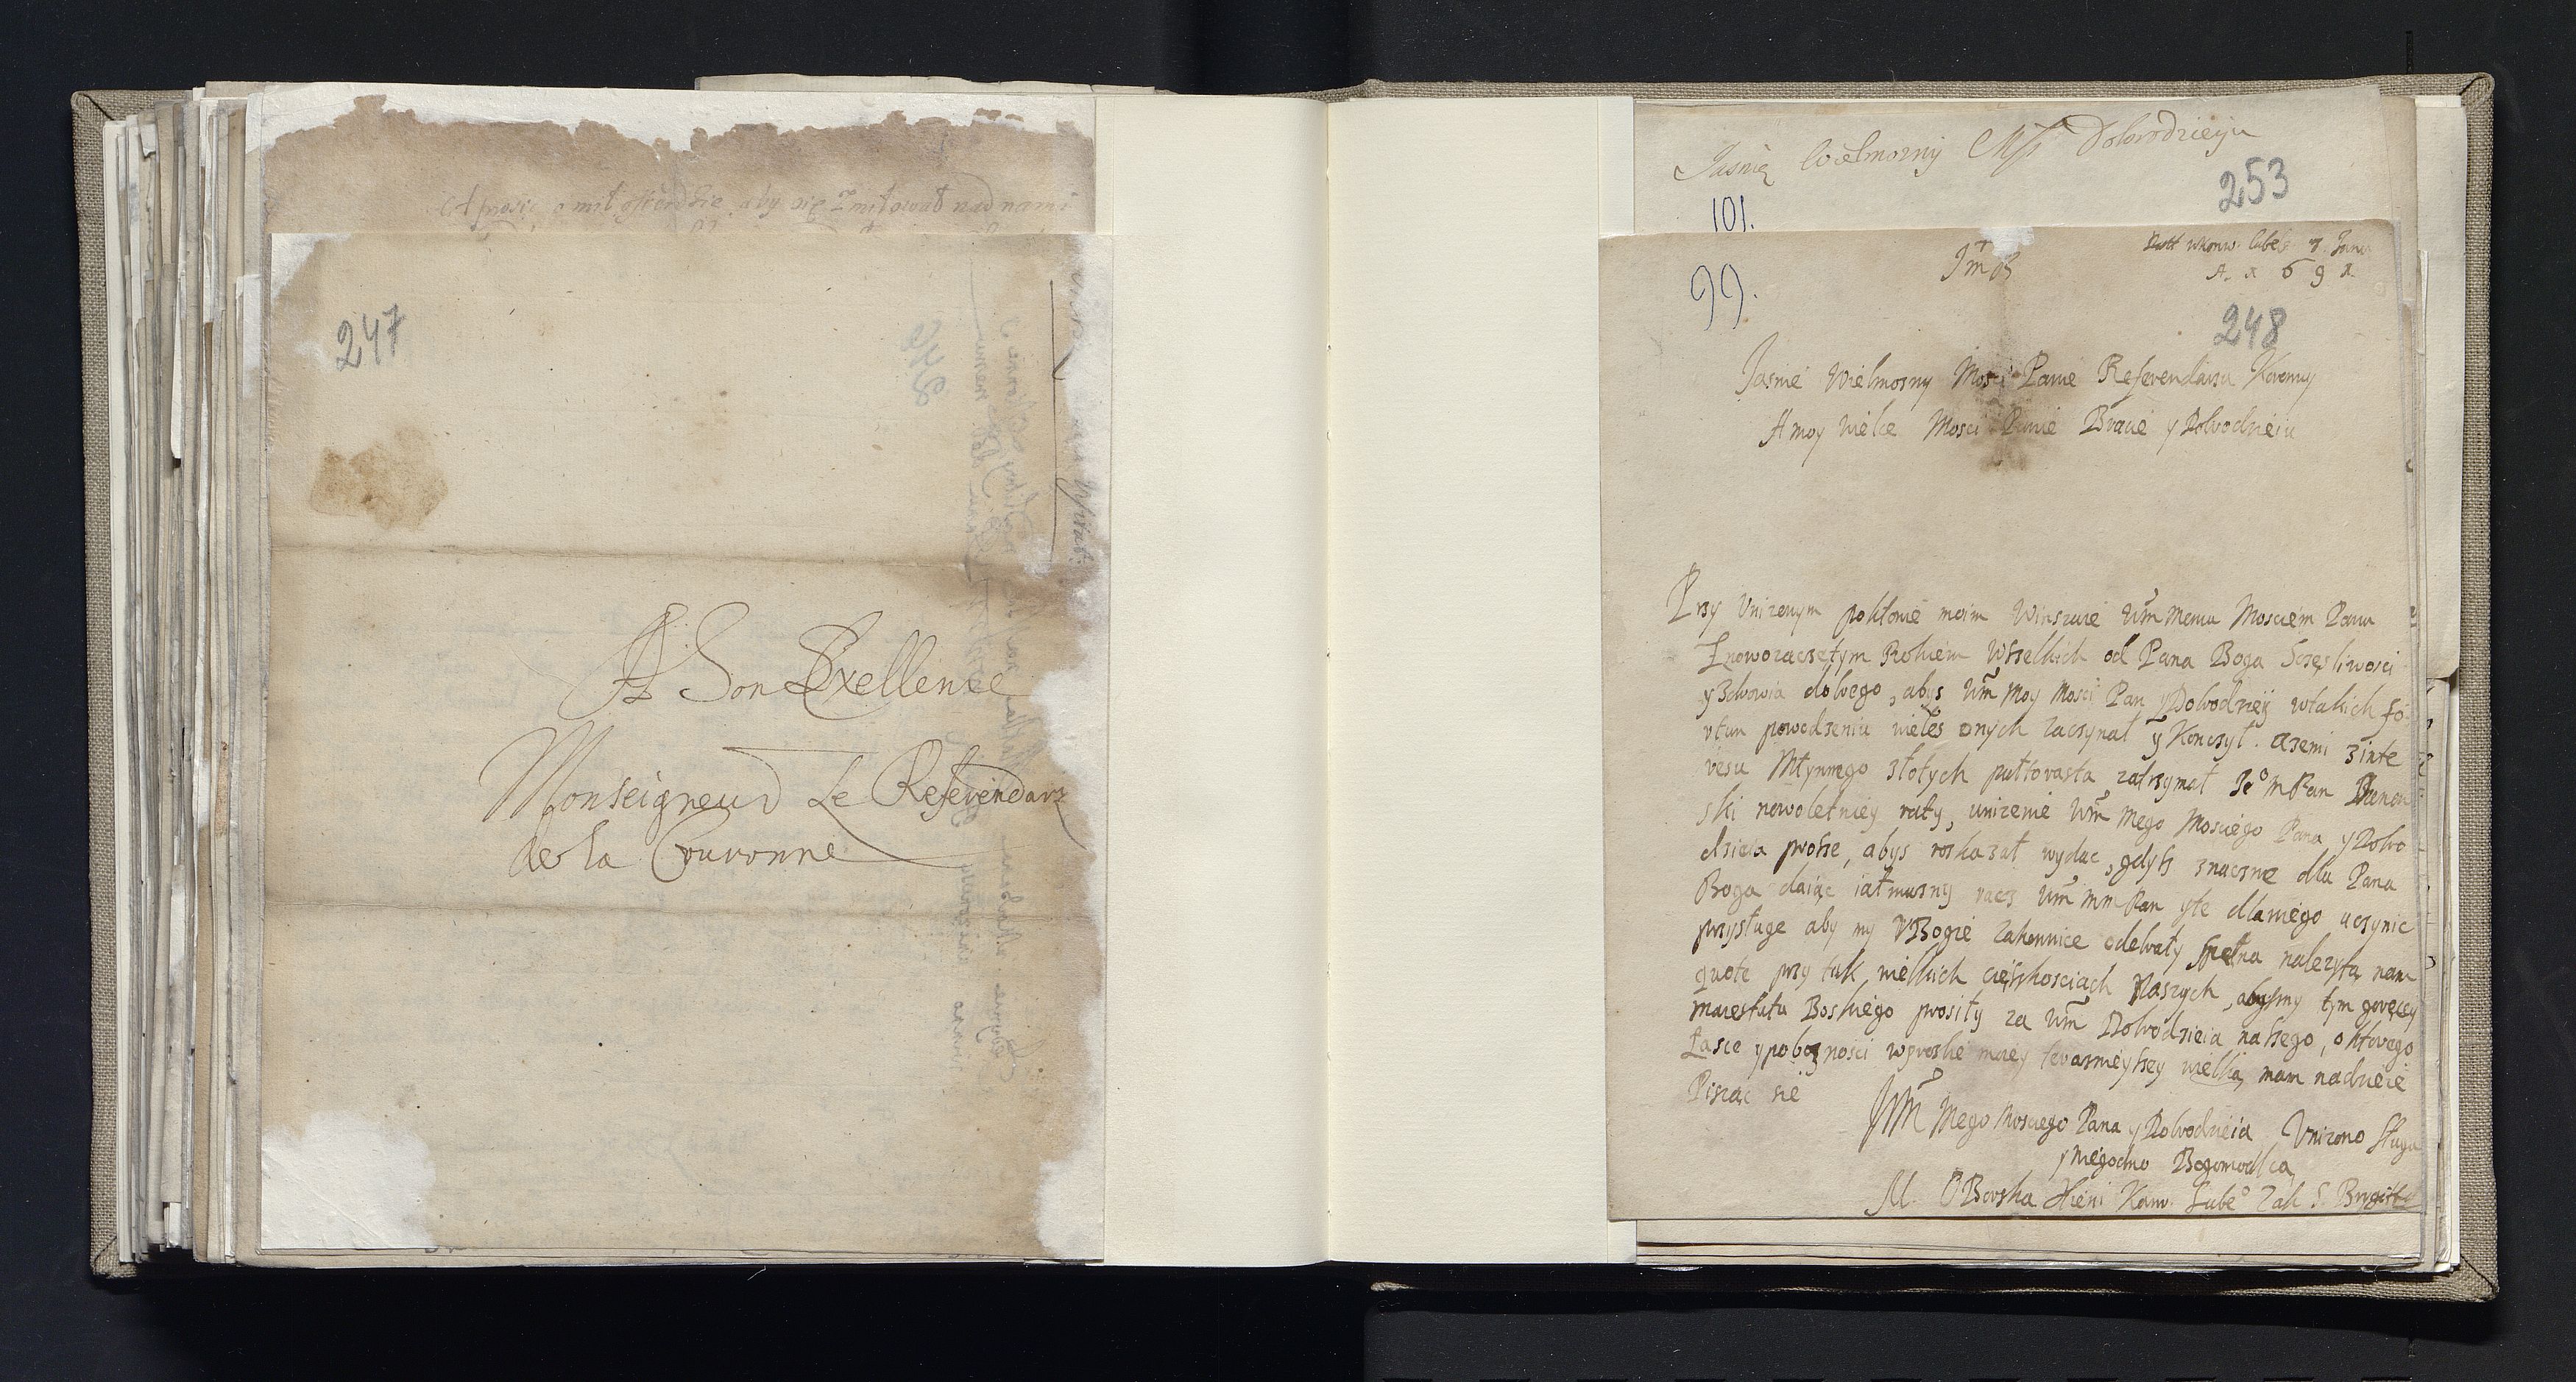 A prosię o miłosierdzie aby się zmiłował nad nami
247
A Son Exellence
Monseigneur Le Referendarz
de la Couronne
Jasnię Wielmozny Msi Dobrodzieyu
253
101.
Jm̄ch
A. 1691
99.
248
Jasnie Wielmozny Mosci Panie Referendarzu Koronny
A moy wielce Mosci Panie Bracie y Dobrodzieiu
Przy Unizonym pokłonie moim Winszuie Wm̄ memu Mosciem Panu
Znowozaczętym Rokiem Wszelkich od Pana Boga Sczesliwosci
y Zdrowia dobrego, abys Wm̄ Moy Mosci Pan y Dobrodziey wtakich fo
rtun powodzeniu wieles onych zaczynał y Konczył. azemi zinte
resu Młynnego złotych pułtorasta zatrzymał Je° m Pan
ski nowoletniey raty, unizenie Wm̄ Mego Mosciego Pana y Dobro
dzieia prosze, abys roskazał wydac, gdysz znaczne dla Pana
Boga daiąc iałmuzny racz Wm̄ Mm Pan yte dlaniego uczynic
przysługe aby my VBogie Zakonnice odebrały Spełna nalezytą nam
quote przy tak wielkich cięszkosciach Naszych, abysmy tym goręcey
maiestatu Boskiego prosiły za Wm̄ Dobrodzieia naszego, oktorego
Łasce ypoboznosci wprosbie moiey terazneyszey wielką mam nadzieie
Pisząc sie
Wm̄ Mego Mosciego Pana y Dobrodzieia Unizono Sługa
y niegodno Bogomodlca
M. Xieni Konw. Lube° Zak S. Brigitty